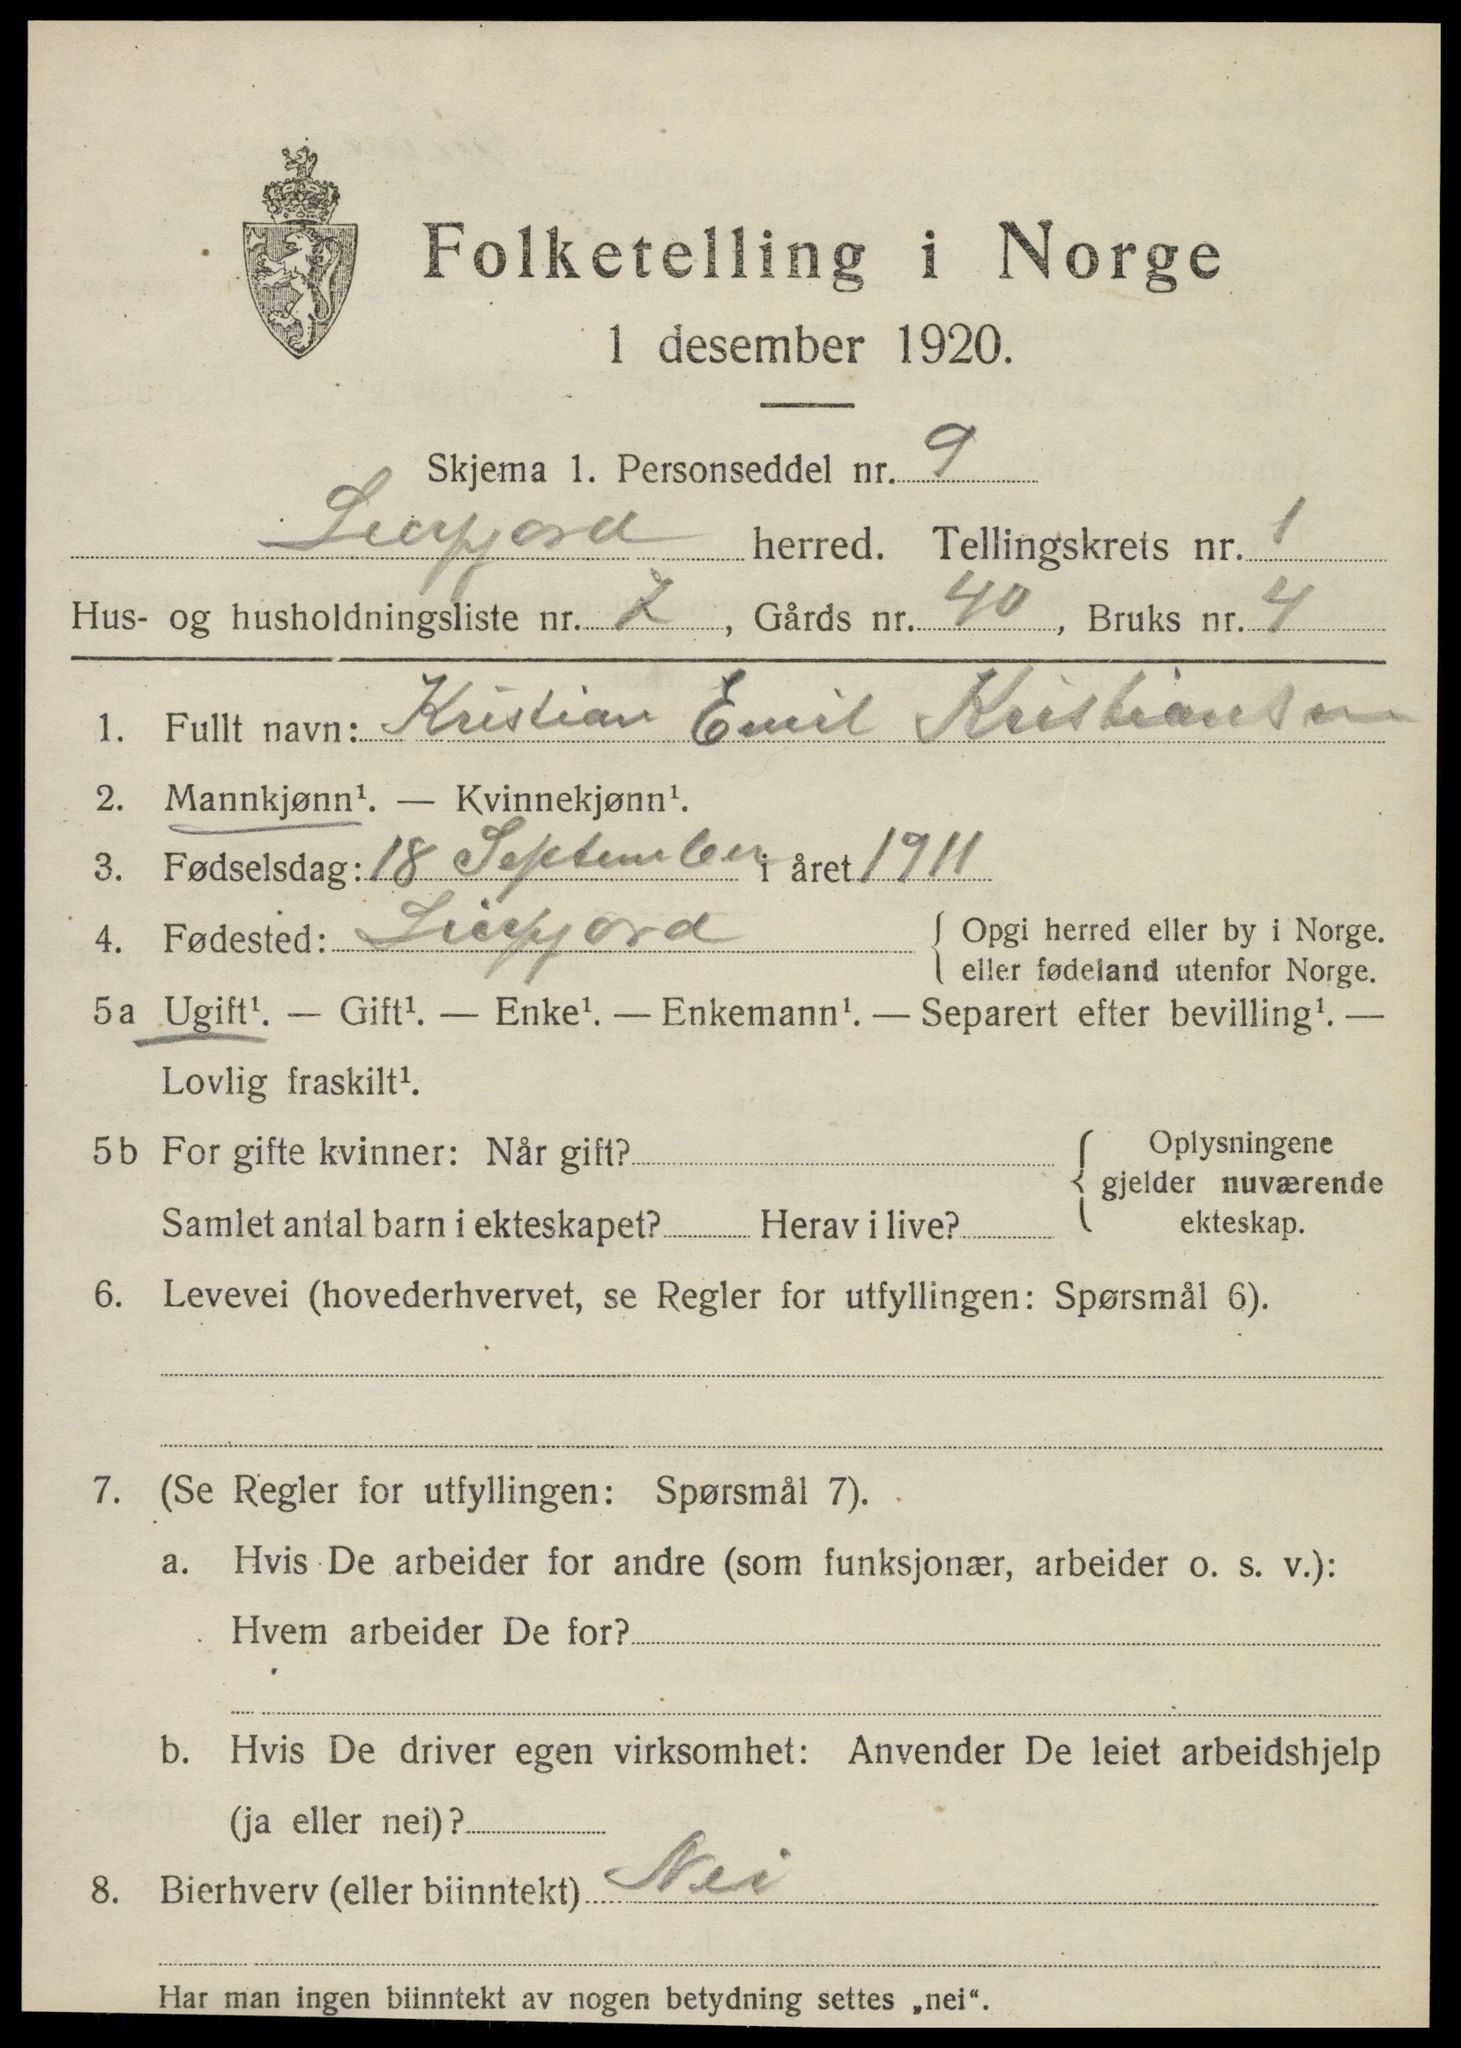 Folketelling i Norge
1 desember 1920.
Skjema 1. Personseddel nr. 9
Leirfjord herred. Tellingskrets nr. 1
Hus- og husholdningsliste nr. 7, Gårds nr. 40, Bruks nr. 4
1. Fullt navn: Kristian Emil Kristiansen
2. Mannkjønn¹. — Kvinnekjønn¹.
3. Fødselsdag: 18 September i året 1911
4. Fødested: Leirfjord { Opgi herred eller by i Norge.
eller fødeland utenfor Norge.
5a Ugift¹. — Gift¹. — Enke¹. — Enkemann¹. — Separert efter bevilling¹. —
Lovlig fraskilt¹.
5b For gifte kvinner: Når gift? { Oplysningene
gjelder nuværende
Samlet antal barn i ekteskapet? Herav i live? ekteskap.
6. Levevei (hovederhvervet, se Regler for utfyllingen: Spørsmål 6).
7. (Se Regler for utfyllingen: Spørsmål 7).
a. Hvis De arbeider for andre (som funksjonær, arbeider o. s. v.):
Hvem arbeider De for?
b. Hvis De driver egen virksomhet: Anvender De leiet arbeidshjelp
(ja eller nei)?
8. Bierhverv (eller biinntekt) Nei
Har man ingen biinntekt av nogen betydning settes „nei“.